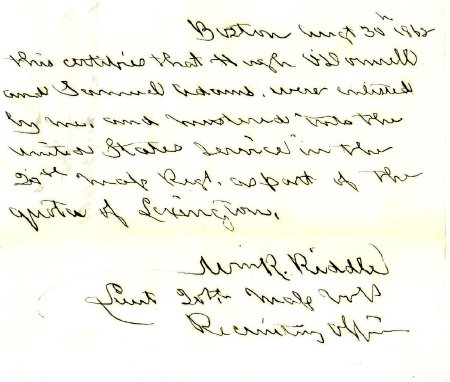 Boston Augt 30th 1862
this certifies that Hugh O'Donnell
and Samuel Adams, were enlisted
by me, and mustered "into the
United States Service" in the
20th Mass Regt. as part of the
quota of Lexington,
Wm R. Riddle
Lieut 20th Mass Vols
Recruiting Officer